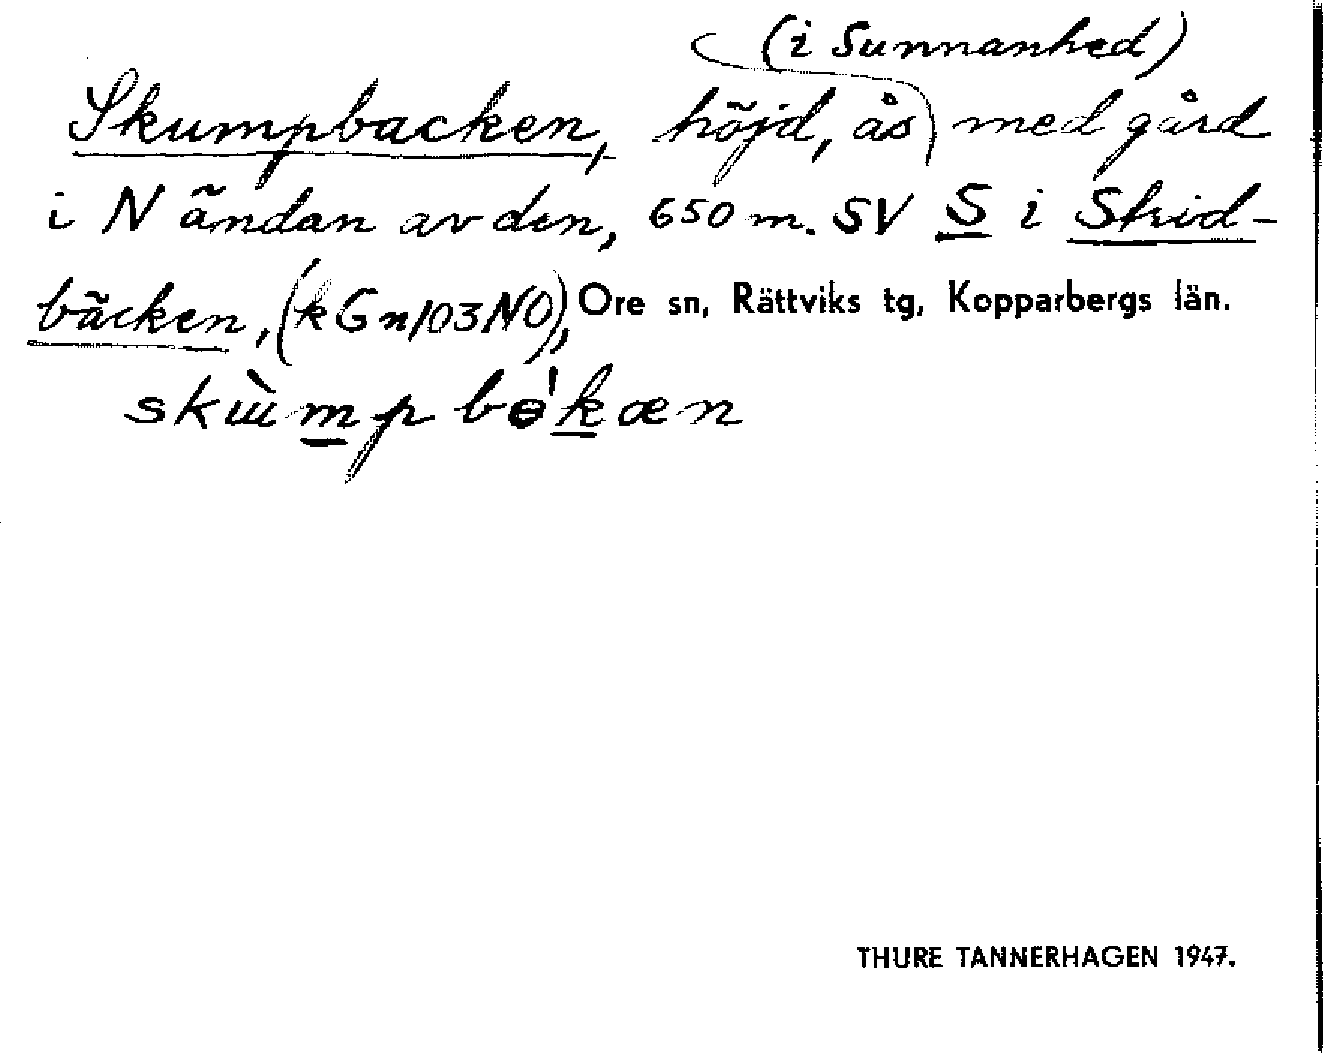 (i Sunnanhed)
Skumpbacken, höjd, ås med gård
i N ändan av den, 650 m. SV S i Skid-
bäcken, (k Gn/03NO), Ore sn, Rättviks tg, Kopparbergs län.
THURE TANNERHAGEN 1947.